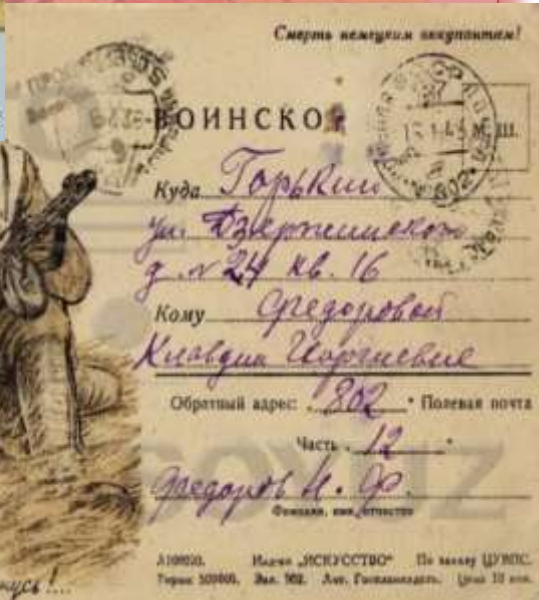 Смерть немецким оккупантам!
ВОИНСКО
Куда Горький
ул. Дзержинского
д. № 24 кв. 16
Кому Федоровой
Клавдии Георгиевне
Обратный адрес: 802 Полевая почта
Часть 12
Федоров И. Ф.
Фамилия, имя, отчество
Издание „ИСКУССТВО“ По заказу
Тираж 500000. Зак. 902. Цена 10 коп.
нусь!...
SOYUZ